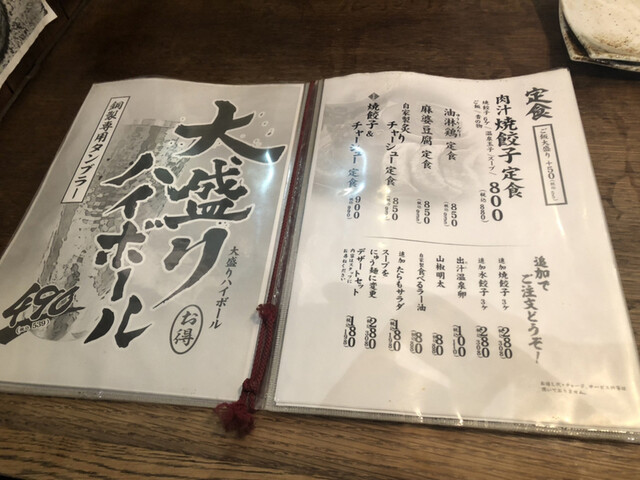 定食
ご飯大盛り +50
肉汁焼餃子定食 800
(税込 880)
油淋鶏 定食 850
麻婆豆腐 定食 850
自家製炙り
チャーシュー定食 850
焼餃子&
チャーシュー定食 900
追加で
ご注文どうぞ!
追加 焼餃子3ヶ 280
追加 水餃子3ヶ 280
出汁温泉卵 100
山椒明太 80
自家製食べるラー油 80
追加 たらもサラダ 180
スープを
にゅう麺に変更 280
デザートセット 180
大盛り
ハイボール
銅製専用タンブラー
大盛りハイボール
お得
490
(税込 539)